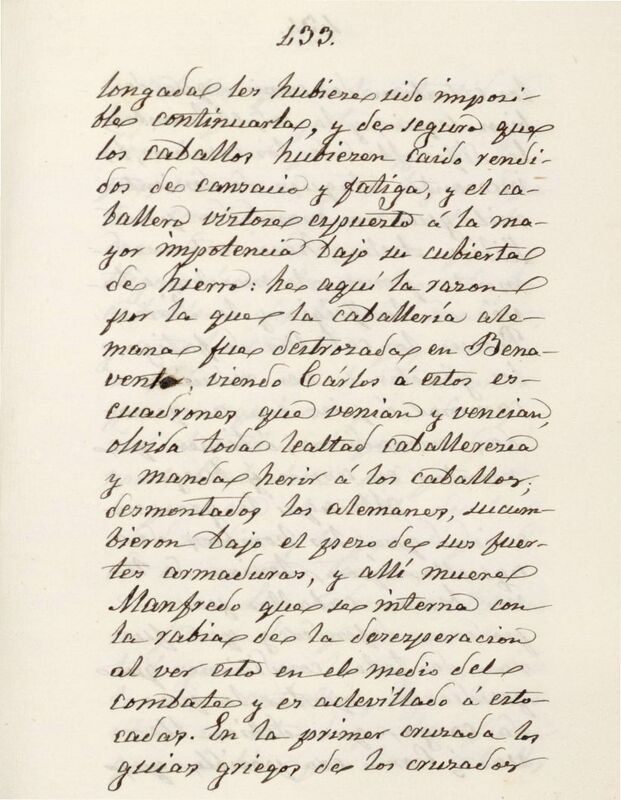 133.
longada les hubiese sido imposi-
ble continuarla, y de seguro que
los caballos hubiesen caido rendi-
dos de cansacio y fatiga, y el ca-
ballero virtose espuesto á la ma-
yor impotencia bajo su cubierta
de hierro: he aquí la razon
por la que la caballería ale-
mana fue destrozada en Bena-
vento, viendo Cárlos á estos es-
cuadrones que venian y vencian,
olvida toda lealtad caballeresca
y manda herir á los caballos;
desmontados los alemanes, sucum-
bieron bajo el peso de sus fuer-
tes armaduras, y allí muere
Manfredo que se interna con
la rabia de la desesperacion
al ver esto en el medio del
combate y es aclevillado á esto-
cadas. En la primer cruzada los
guias griegos de los cruzados